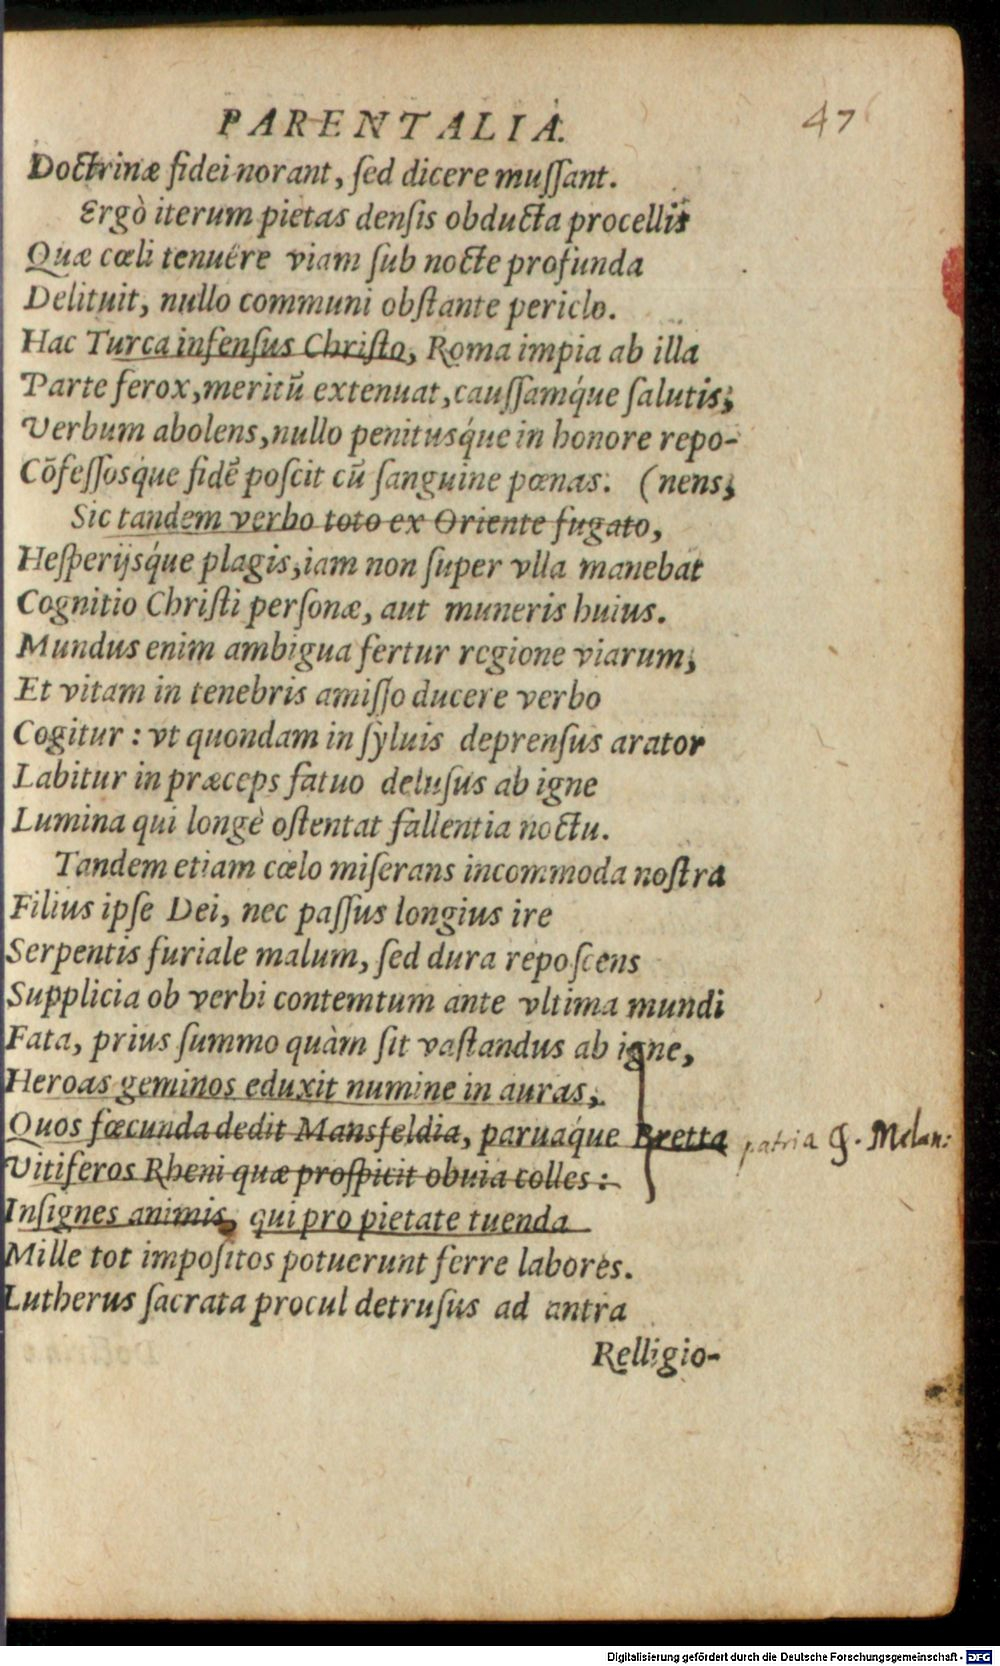 PARENTALIA.
47
Doctrinæ fidei norant, ſed dicere muſſant.
Ergò iterum pietas denſis obducta procellis
Quæ cœli tenuêre viam ſub nocte profunda
Delituit, nullo communi obſtante periclo.
Hac Turca infenſus Chriſto, Roma impia ab illa
Parte ferox, meritū extenuat, cauſſamq́ue ſalutis;
Verbum abolens, nullo penitusq́ue in honore repo-
Cōfeſſosq́ue fidē poſcit cū ſanguine pœnas. (nens;
Sic tandem verbo toto ex Oriente fugato,
Heſperijsq́ue plagis, iam non ſuper vlla manebat
Cognitio Chriſti perſonæ, aut muneris huius.
Mundus enim ambigua fertur regione viarum,
Et vitam in tenebris amiſſo ducere verbo
Cogitur: vt quondam in ſyluis deprenſus arator
Labitur in præceps fatuo deluſus ab igne
Lumina qui longè oſtentat fallentia noctu.
Tandem etiam cœlo miſerans incommoda noſtra
Filius ipſe Dei, nec paſſus longius ire
Serpentis furiale malum, ſed dura repoſcens
Supplicia ob verbi contemtum ante vltima mundi
Fata, prius ſummo quàm ſit vaſtandus ab igne,
Heroas geminos eduxit numine in auras,
Quos fœcunda dedit Mansfeldia, paruaq́ue Bretta
patria Melan:
Vitiferos Rheni quæ proſpicit obuia colles:
Inſignes animis, qui pro pietate tuenda
Mille tot impoſitos potuerunt ferre labores.
Lutherus ſacrata procul detruſus ad antra
Relligio-
Digitalisierung gefördert durch die Deutsche Forschungsgemeinschaft - DFG